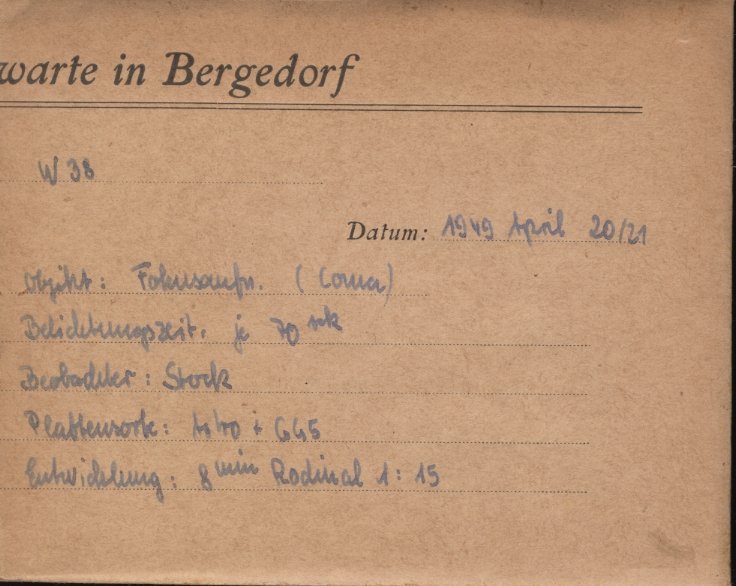 warte in Bergedorf
W 38
Datum: 1949 April 20/21
Objekt: Fokusaufn. (Coma)
Belichtungszeit. je 70 sek
Beobachter: Stock
Plattensorte: Astro + GG5
Entwicklung: 8 min Rodinal 1:15